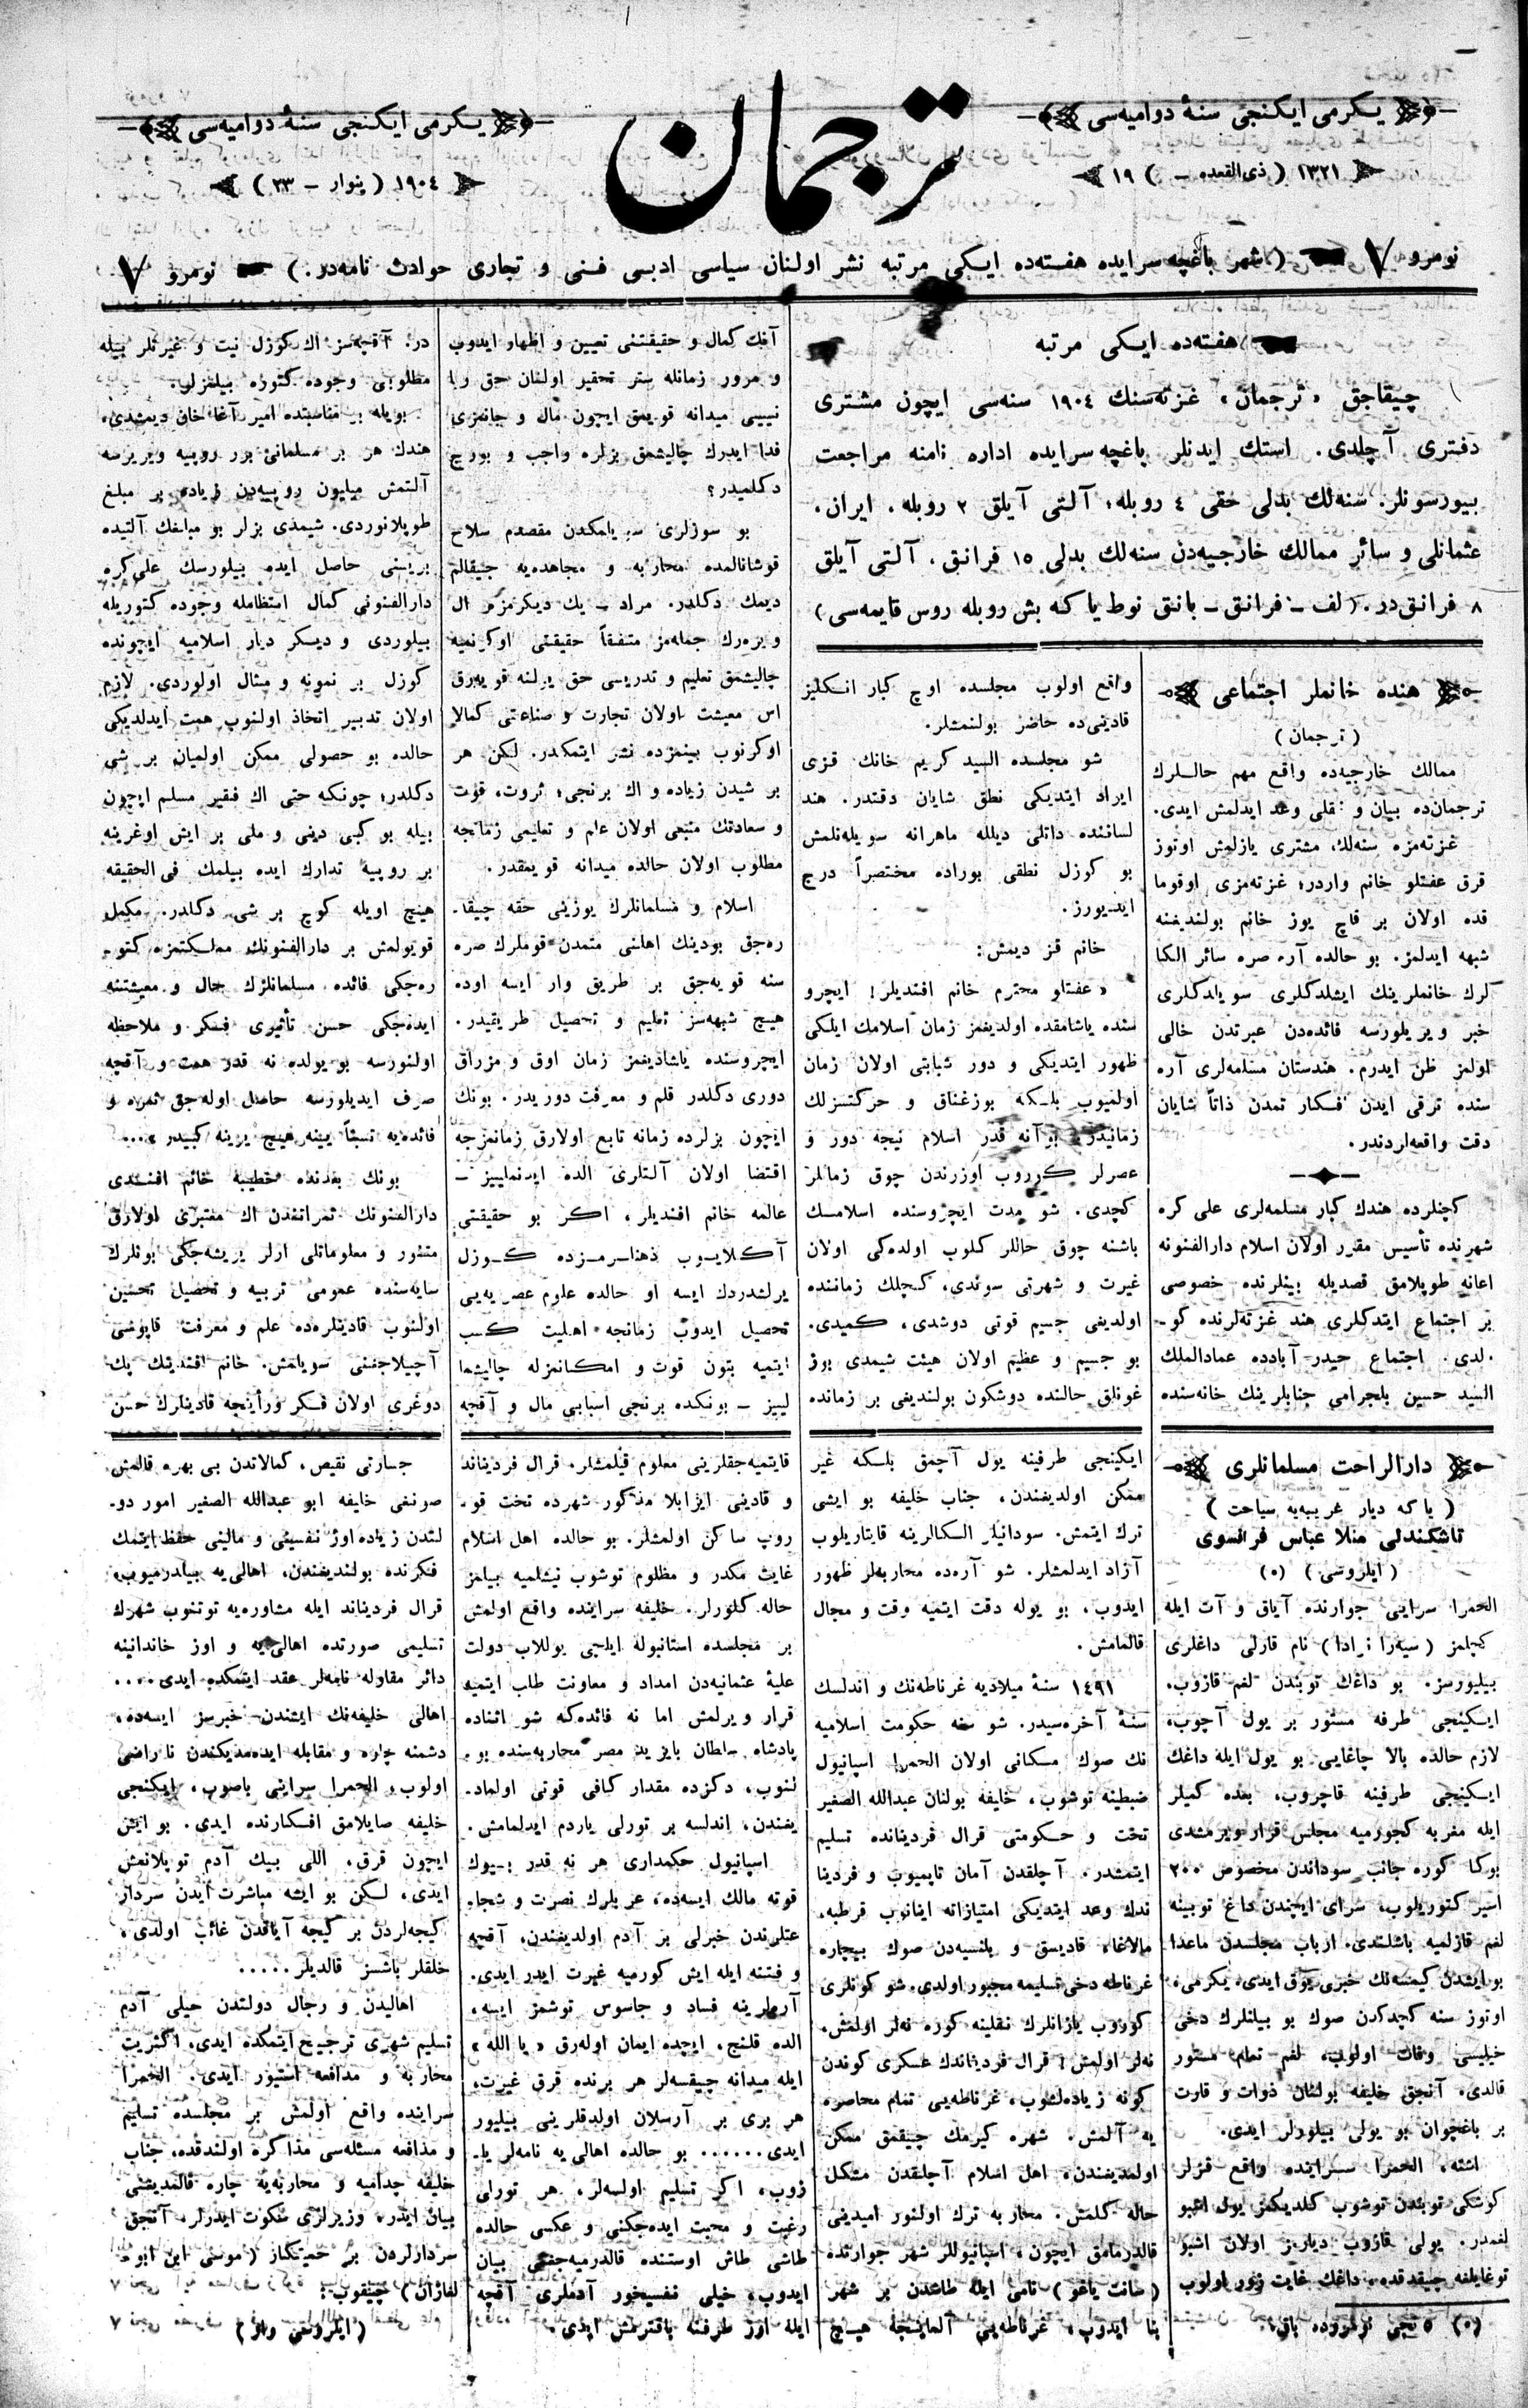 یكرمی ایكنجی سنهٔ دوامیه‌سی
یكرمی ایكنجی سنهٔ دوامیه‌سی
ترجمان
١٣٢١ ( ذی‌القعده – ) ١٩
١٩٠٤ ( ینوار – ٢٣ )
نومرو ٧ ( شهر باغچه سرایده هفته‌ده ایكی مرتبه نشر اولنان سیاسی ادبی فنی و تجاری حوادث نامه‌در. ) نومرو ٧
هفته‌ده ایكی مرتبه
چیقاجق «ترجمان» غزته‌سنك ١٩٠٤ سنه‌سی ایچون مشتری
دفتری آچلدی. استك ایدنلر باغچه سرایده اداره نامنه مراجعت
بیورسونلر. سنه‌لك بدلی حقی ٤ روبله؛ آلتی آیلق ٢ روبله. ایران،
عثمانلی و سائر ممالك خارجیه‌دن سنه‌لك بدلی ١٥ فرانق، آلتی آیلق
٨ فرانق‌در. (لف – فرانق – بانق نوط یا كه بش روبله روس قایمه‌سی)
هنده خانملر اجتماعی
( ترجمان )
ممالك خارجیه‌ده واقع مهم حاللرك
ترجمان‌ده بیان و نقلی وعد ایدلمش ایدی.
غزته‌مزه سنه‌لك مشتری یازلمش اوتوز
قرق عفتلو خانم واردر؛ غزته‌مزی اوقوما
قده اولان بر قاچ یوز خانم بولندیغنه
شبهه ایدلمز. بو حالده آره صره سائر الكا
لرك خانملرینك ایشلدكلری سویلدكلری
خبر ویریلورسه فائده‌دن عبرتدن خالی
اولمز ظن ایدرم. هندستان مسلمه‌لری آره
سنده ترقی ایدن افكار تمدن ذاتاً شایان
دقت واقعه‌لردندر.
كچنلرده هندك كبار مسلمه‌لری علی كره
شهرنده تأسیس مقرر اولان اسلام دارالفنونه
اعانه طوپلامق قصدیله بینلرنده خصوصی
بر اجتماع ایتدكلری هند غزته‌لرنده كو-
رلدی. اجتماع حیدر آبادده عمادالملك
السید حسین بلجرامی جنابلرینك خانه‌سنده
واقع اولوب مجلسده اوچ كبار انكلیز
قادینی‌ده حاضر بولنمشلر.
شو مجلسده السید كریم خانك قزی
ایراد ایتدیكی نطق شایان دقتدر. هند
لساننده داتلی دیلله ماهرانه سویله‌نلمش
بو كوزل نطقی بوراده مختصراً درج
ایدیورز.
خانم قز دیمش:
«عفتلو محترم خانم افندیلر! ایچرو
سنده یاشامقده اولدیغمز زمان اسلامك ایلكی
ظهور ایتدیكی و دور شبابتی اولان زمان
اولمیوب بلكه بوزغناق و حركتسزلك
زمانیدر. بو آنه قدر اسلام نیجه دور و
عصرلر كوروب اوزرندن چوق زمانلر
كچدی. شو مدت ایچروسنده اسلامك
باشنه چوق حاللر كلوب اولده‌كی اولان
غیرت و شهرتی سوندی، كچلك زماننده
اولدیغی جسیم قوتی دوشدی، كمیدی.
بو جسیم و عظیم اولان هیئت شیمدی بوز
غونلق حالنده دوشكون بولندیغی بر زمانده
آنك كمال و حقیقتنی تعیین و اظهار ایدوب
و مرور زمانله ستر تحقیر اولنان حق ربا
نییی میدانه قویمق ایچون مال و جانمزی
فدا ایدرك چالیشمق بزلره واجب و بورچ
دكلمیدر؟
بو سوزلری سویلمكدن مقصدم سلاح
قوشانالمده محاربه و مجاهده‌یه چیقالم
دیمك دكلدر. مراد – یك دیكرمزه ال
ویره‌رك جمله‌مز متفقاً حقیقتی اوكرنمیه
چالیشمق تعلیم و تدریسی حق یولنه قویه‌رق
اس معیشت اولان تجارت و صناعتی كمالا
اوكرنوب بینمزده نشر ایتمكدر. لكن هر
بر شیدن زیاده و اك برنجی؛ ثروت، قوت
و سعادتك منبعی اولان علم و تعلیمی زمانجه
مطلوب اولان حالده میدانه قویمقدر.
اسلام و مسلمانلرك یوزینی حقه چیقا-
ره‌جق بودینك اهلنی متمدن قوملرك صره
سنه قویه‌جق بر طریق وار ایسه اوده
هیچ شبهه‌سز تعلیم و تحصیل طریقیدر.
ایچروسنده یاشادیغمز زمان اوق و مزراق
دوری دكلدر قلم و معرفت دوریدر. بونك
ایچون بزلرده زمانه تابع اولارق زمانمزجه
اقتضا اولان آلتلری الده ایدنملییز –
عالمه خانم افندیلر، اكر بو حقیقتی
آكلایوب ذهنلرمزده كوزل
یرلشدردك ایسه او حالده علوم عصریه‌یی
تحصیل ایدوب زمانجه اهلیت كسب
ایتمیه بتون قوت و امكانمزله چالیشما
لییز – بونكده برنجی اسبابی مال و آقچه
در. آقچه‌سز اك كوزل نیت و غیرتلر بیله
مطلوبی وجوده كتوره بیلمزلر.
بویله بر مناسبتده امیر آغا خان دیمشدی،
هندك هر بر مسلمانی برر روپیه ویریرسه
آلتمش میلیون روپیه‌دن زیاده بر مبلغ
طوپلانوردی. شیمدی بزلر بو مبلغك آلتیده
بریسنی حاصل ایده بیلورسك علی كره
دارالفنونی كمال انتظامله وجوده كتوریله
بیلوردی و دیكر دیار اسلامیه ایچونده
كوزل بر نمونه و مثال اولوردی. لازم
اولان تدبیر اتخاذ اولنوب همت ایدلدیكی
حالده بو حصولی ممكن اولمیان بر شی
دكلدر؛ چونكه حتی اك فقیر مسلم ایچون
بیله بو كبی دینی و ملی بر ایش اوغرینه
بر روپیه تدارك ایده بیلمك فی‌الحقیقه
هیچ اویله كوچ بر شی دكلدر. مكمل
قویولمش بر دارالفنونك مملكتمزه كتو-
ره‌جكی فائده مسلمانلرك حال و معیشتنه
ایده‌جكی حسن تأثیری فكر و ملاحظه
اولنورسه بو یولده نه قدر همت و آقچه
صرف ایدیلورسه حاصل اوله‌جق ثمره و
فائده‌یه نسبتاً ینه هیچ یرینه كبیدر»...
بونك بعدنده خطیبه خانم افندی
دارالفنونك ثمراتندن اك معتبری اولارق
متنور و معلوماتلی ارلر یریشه‌جكی بونلرك
سایه‌سنده عمومی تربیه و تحصیل تحسین
اولنوب قادینلره‌ده علم و معرفت قاپوسی
آچیلاجغنی سویلمش. خانم افندینك پك
دوغری اولان فكر و رأینجه قادینلرك حسن
دارالراحت مسلمانلری
( یا كه دیار غریبه‌یه سیاحت )
تاشكندلی منلا عباس فرانسوی
( ایلروسی ) (٥)
الحمرا سرایی جوارنده آیاق و آت ایله
كچلمز (سیه‌را نوادا) نام قارلی داغلری
بیلیورسز. بو داغك توبندن لغم قازوب،
ایكنجی طرفه مستور بر یول آچوب،
لازم حالده بالا چاغایی بو یول ایله داغك
ایكنجی طرفینه قاچروب، بعده كمیلر
ایله مغربه كچورمیه مجلس قرار ویرمشدی
بوكا كوره جانب سوداندن مخصوص ٢٠٠
اسیر كتوریلوب، سرای ایچندن داغ توبینه
لغم قازلمیه باشلندی. ارباب مجلسدن ماعدا
بو ایشدن كیمسه‌نك خبری یوق ایدی. یكرمی،
اوتوز سنه كچدكدن صوك بو بیلنلرك دخی
خیلیسی وفات اولوب، لغم تمام مستور
قالدی. آنجق خلیفه بولنان ذوات و قارت
بر باغچوان بو یولی بیلورلر ایدی.
اشته، الحمرا سراینده واقع قزلر
كوشكی توبندن توشوب كلدیكمز یول اشبو
لغمدر. یولی قازوب دیارمز اولان اشبو
توغایلغه چیقدقده، داغك غایت زور اولوب
(٥) ٥ نجی نومروده باق.
ایكینجی طرفینه یول آچمق بلكه غیر
ممكن اولدیغندن، جناب خلیفه بو ایشی
ترك ایتمش. سودانیلر الكالرینه قایتاریلوب
آزاد ایدلمشلر. شو آره‌ده محاربه‌لر ظهور
ایدوب، بو یوله دقت ایتمیه وقت و مجال
قالمامش.
١٤٩١ سنهٔ میلادیه غرناطه‌نك و اندلسك
سنهٔ آخره‌سیدر. شو سنه حكومت اسلامیه
نك صوك مسكانی اولان الحمرا اسپانیول
ضبطینه توشوب، خلیفه بولنان عبدالله الصغیر
تخت و حكومتی قرال فردینانده تسلیم
ایتمشدر. آچلقدن آمان تاپمیوب و فردینا
ندك وعد ایتدیكی امتیازاته اینانوب قرطبه،
مالاغا، قادیسق و بلنسیه‌دن صوك بیچاره
غرناطه دخی تسلیمه مجبور اولدی. شو كونلری
كوروب یازانلرك نقلینه كوره نه‌لر اولمش،
نه‌لر اولمش! قرال فردیناندك عسكری كوندن
كونه زیاده‌لشوب، غرناطه‌یی تمام محاصره
یه آلمش. شهره كیرمك چیقمق ممكن
اولمدیغندن، اهل اسلام آچلقدن مشكل
حاله كلمش. محاربه ترك اولنور امیدینی
قالدرمامق ایچون، اسپانیوللر شهر جوارنده
(سانت یاغو) نامی ایله طاشدن بر شهر
بنا ایدوب، غرناطه‌یی آلماینجه هیچ
قایتمیه‌جقلرینی معلوم قیلمشلر. قرال فردیناند
و قادینی ایزابلا مذكور شهرده تخت قو-
روپ ساكن اولمشلر. بو حالده اهل اسلام
غایت مكدر و مظلوم توشوب نیشلمیه بیلمز
حاله كلورلر. خلیفه سراینده واقع اولمش
بر مجلسده استانبوله ایلچی یوللاب دولت
علیهٔ عثمانیه‌دن امداد و معاونت طلب ایتمیه
قرار ویرلمش اما نه فائده‌كه شو اثناده
پادشاه سلطان بایزید مصر محاربه‌سنده بو-
لنوب، دكزده مقدار كافی قوتی اولماد-
یغندن، اندلسه بر تورلی یاردم ایدلمامش.
اسپانیول حكمداری هر نه قدر بیوك
قوته مالك ایسه‌ده، عربلرك نصرت و شجا-
عتلرندن خبرلی بر آدم اولدیغندن، آقچه
و فتنه ایله ایش كورمیه غیرت ایدر ایدی.
آرلرینه فساد و جاسوس توشمز ایسه،
الده قلنج، ایچده ایمان اوله‌رق «یا الله»
ایله میدانه چیقسه‌لر هر برنده قرق غیرت،
هر بری بر آرسلان اولدقلرینی بیلیور
ایدی...... بو حالده اهالی یه نامه‌لر یا-
زوب، اكر تسلیم اولسه‌لر، هر تورلی
رغبت و محبت ایده‌جكنی و عكسی حالده
طاشی طاش اوستنده قالدرمیه‌جغنی بیان
ایدوب، خیلی نفسیخور آدملری آقچه
ایله اوز طرفنه باقترمش ایدی.
جسارتی نقیص، كمالاتدن بی بهره قالمش
صونغی خلیفه ابو عبدالله الصغیر امور دو-
لتدن زیاده اوز نفسینی و مالینی حفظ ایتمك
فكرنده بولندیغندن، اهالی‌یه بیلدرمیوب،
قرال فردیناند ایله مشاوره‌یه توتنوب شهرك
تسلیمی صورتده اهالی‌یه و اوز خاندانینه
دائر مقاوله نامه‌لر عقد ایتمكده ایدی....
اهالی خلیفه‌نك ایشندن خبرسز ایسه‌ده،
دشمنه چاره و مقابله ایده‌مدیكندن ناراضی
اولوب، الحمرا سراینی باصوب، ایكنجی
خلیفه صایلامق افكارنده ایدی. بو ایش
ایچون قرق، اللی بیك آدم توپلانمش
ایدی، لكن بو ایشه مباشرت ایدن سردار
كیجه‌لردن بر كیجه آیاقدن غائب اولدی،
خلقلر باشسز قالدیلر.....
اهالیدن و رجال دولتدن خیلی آدم
تسلیم شهری ترجیح ایتمكده ایدی. اكثریت
محاربه و مدافعه استیور ایدی. الحمرا
سراینده واقع اولمش بر مجلسده تسلیم
و مدافعه مسئله‌سی مذاكره اولندقده، جناب
خلیفه چدامیه و محاربه‌یه چاره قالمدیغنی
بیان ایدر، وزیرلری سكوت ایدرلر، آنجق
سردارلردن بر حمیتكار (موسی ابن ابو-
لغازان) چیقوب:
(ایلروسی وار)